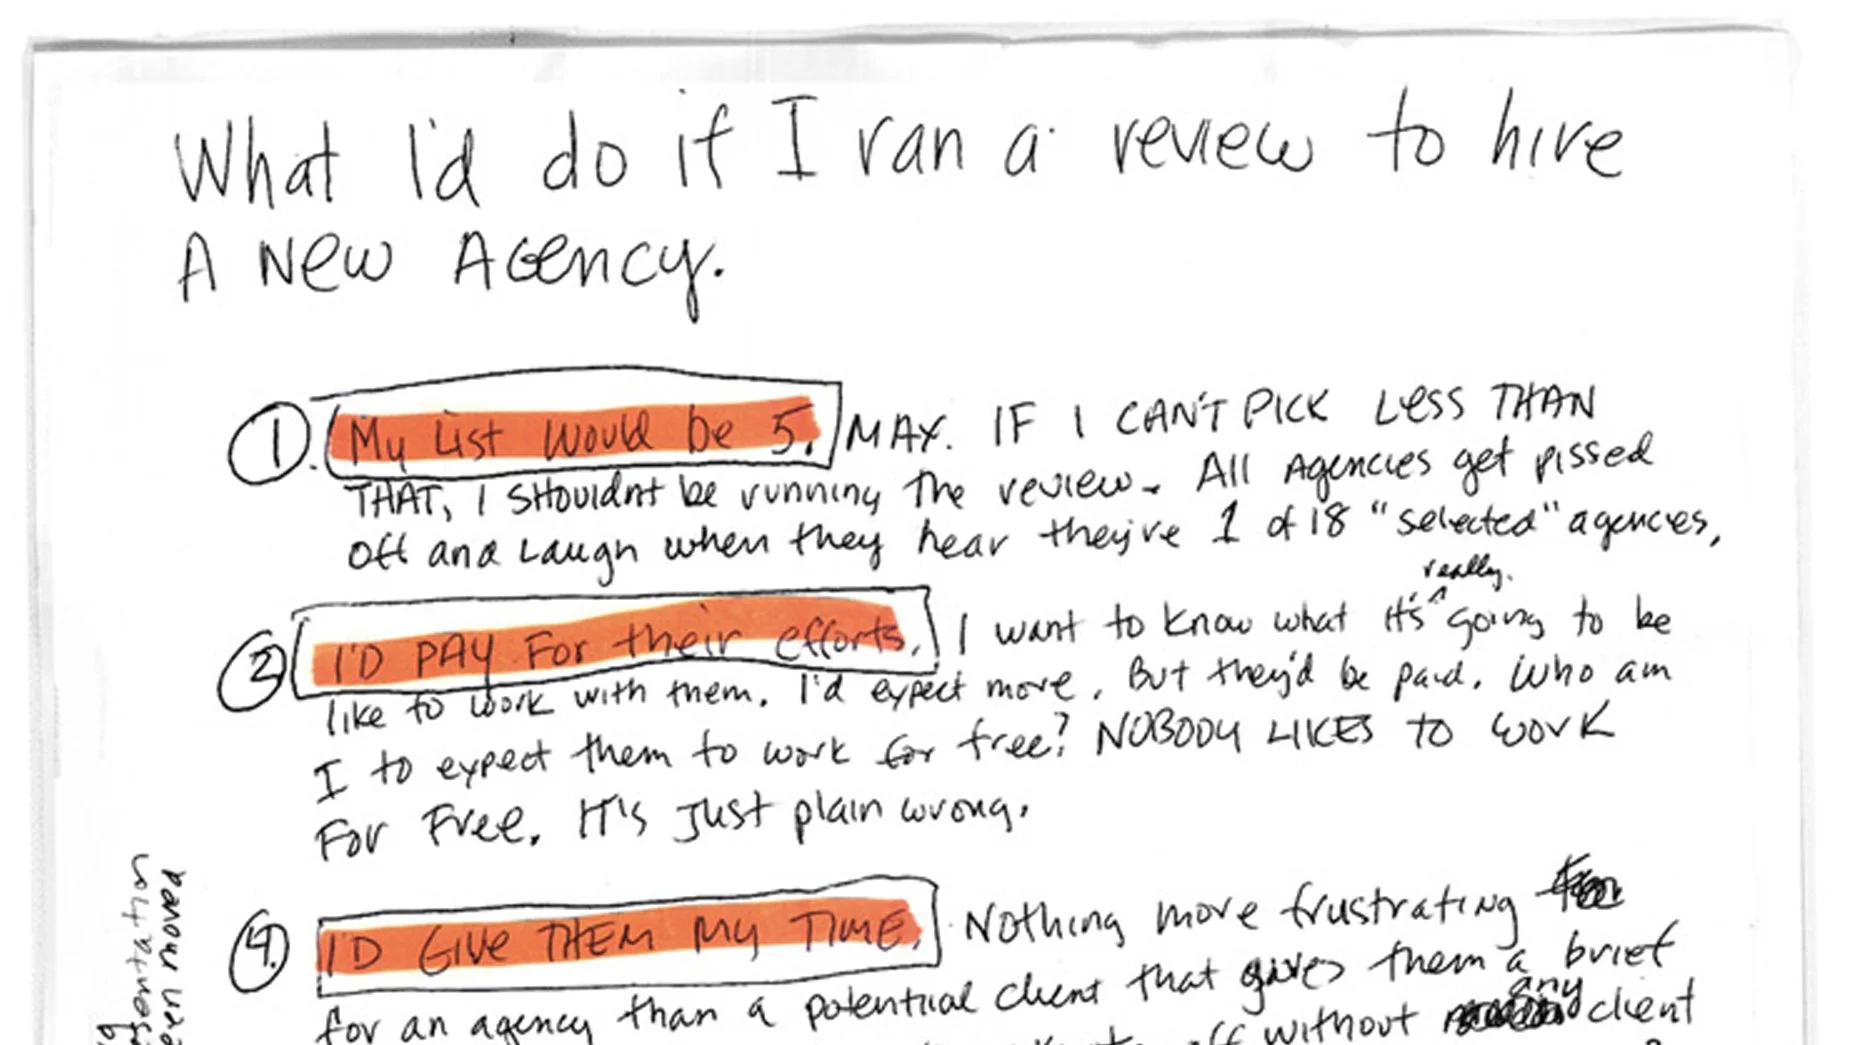 What I'd do if I ran a review to hire
A New Agency.
1. My List Would be 5. MAX. IF I CAN'T PICK LESS THAN
THAT, I SHouldnt be running The review. All Agencies get pissed
off and Laugh when they hear they're 1 of 18 "selected" agencies,
really.
2. I'D PAY For their efforts. I want to know what it's ^ going to be
like to work with them. I'd expect more. But they'd be paid. Who am
I to expect them to work for free? NOBODY LIKES to work
For Free. IT'S Just plain wrong.
4. I'D GIVE THEM MY TIME. Nothing more frustrating
for an agency than a potential client that gives them a brief
off without any client
een moved